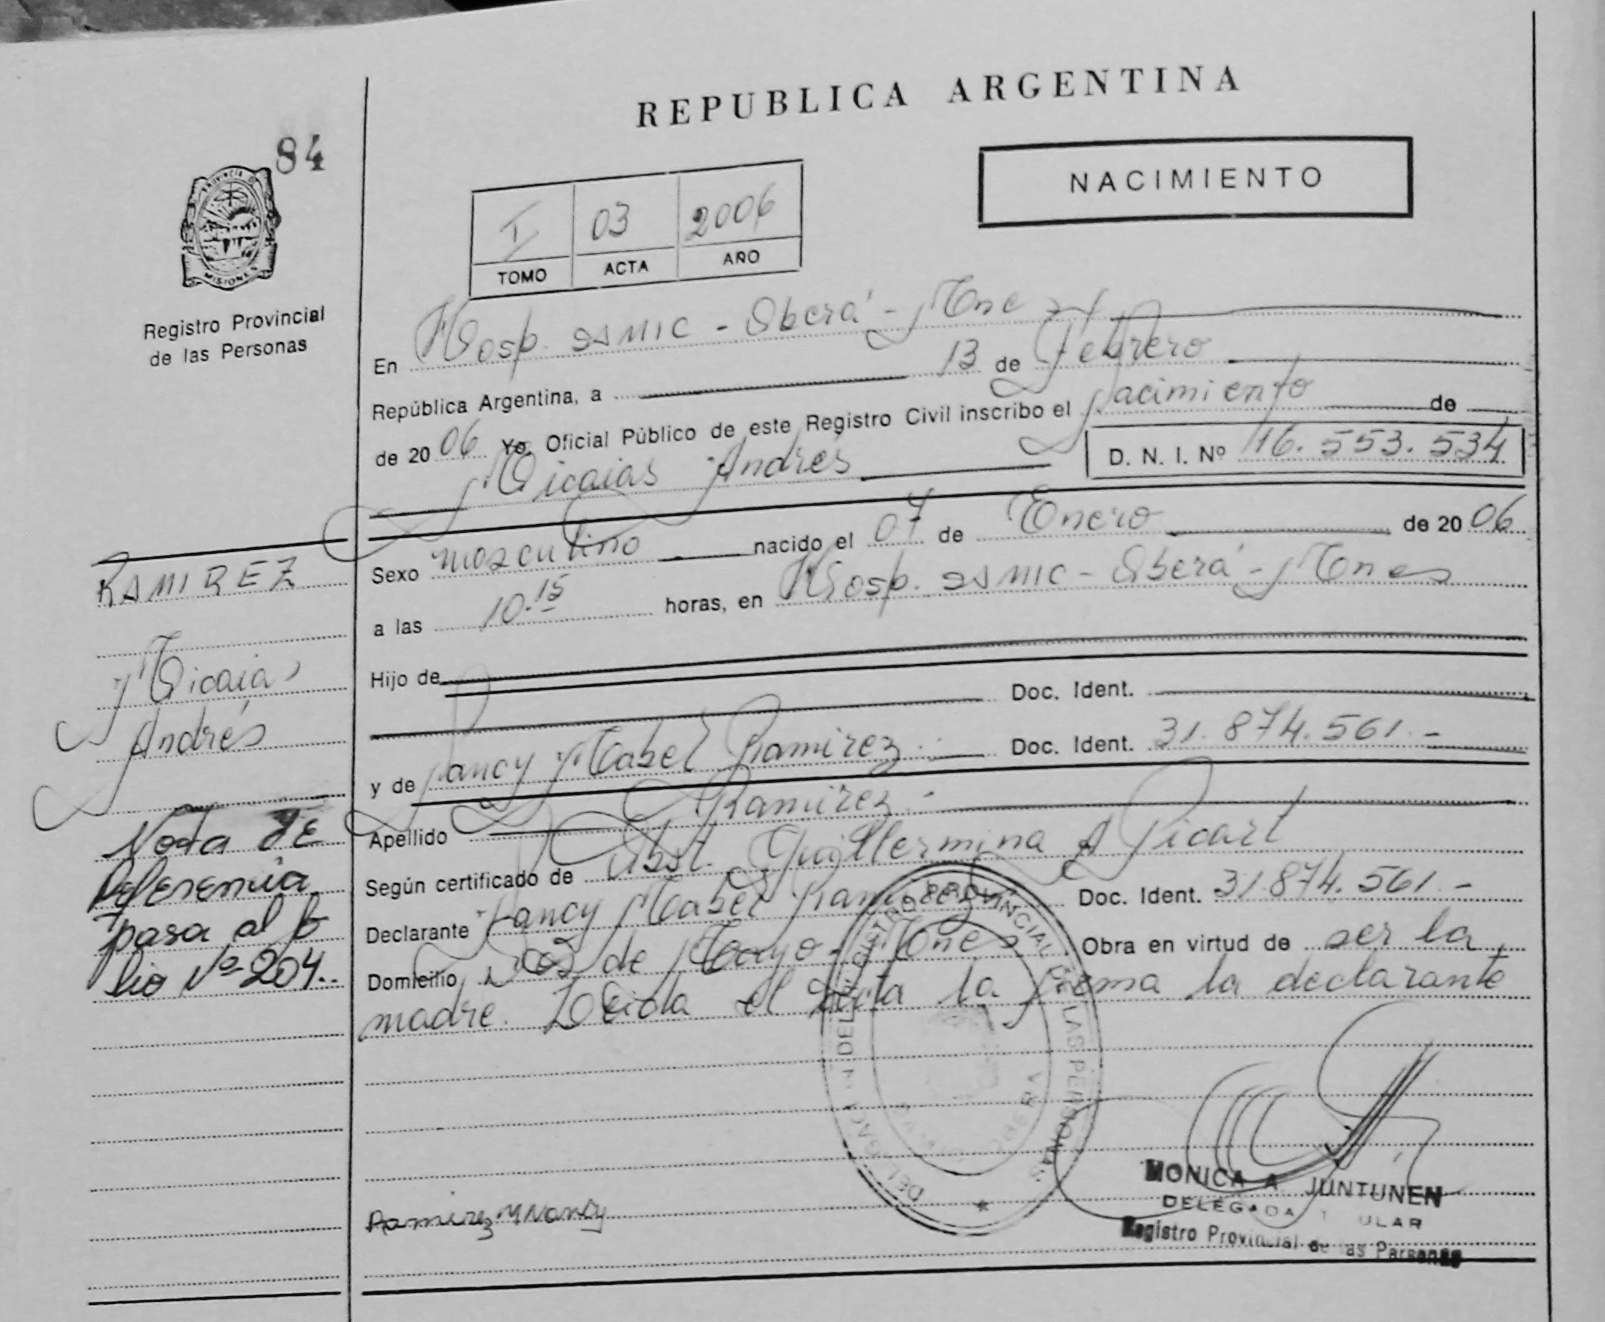 REPUBLICA ARGENTINA
84
PROVINCIA DE
MISIONES
Registro Provincial
de las Personas
NACIMIENTO
I 03 2006
TOMO ACTA AÑO
En Hosp. SAMIC - Oberá - Mnes
República Argentina, a 13 de Febrero
de 2006 Yo, Oficial Público de este Registro Civil inscribo el Nacimiento de
Micaias Andrés D. N. I. Nº 16.553.534
Sexo masculino nacido el 07 de Enero de 2006
a las 10.15 horas, en Hosp. SAMIC - Oberá - Mnes
Hijo de
Doc. Ident.
y de Nancy Mabel Ramirez.- Doc. Ident. 31.874.561.-
Apellido Ramirez.-
Según certificado de Obst. Guillermina A Picart
Declarante Nancy Mabel Ramirez Doc. Ident. 31.874.561.-
Domicilio de Mayo - Mnes Obra en virtud de ser la
madre. Leida el acta la firma la declarante
RAMIREZ
Micaias
Andrés
Nota DE
Referencia
pasa al fo
lio Nº 204..
Ramirez M Nancy
REGISTRO PROVINCIAL DE LAS PERSONAS
MONICA A. JUNTUNEN
DELEGADA TITULAR
Registro Provincial de las Personas